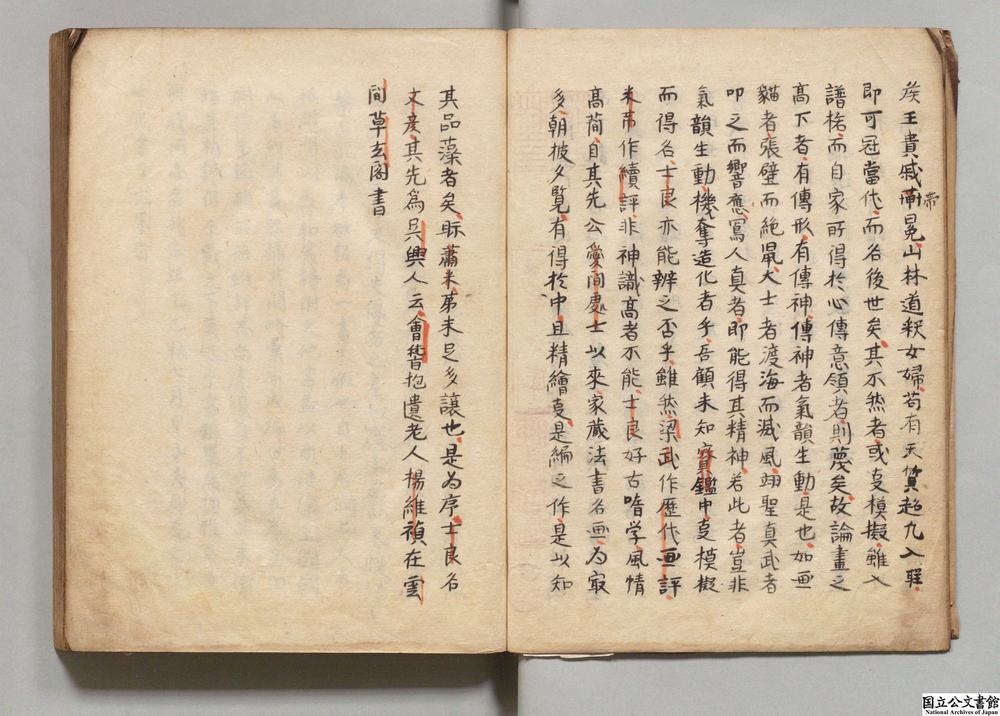 矦王貴戚軒冕山林道釈女婦苟有天質超凢入聖
帯
即可冠當代而名後世矣其不然者或事模擬雖入
譜格而自家所得於心傳意領者則蔑矣故論畫之
高下者有傳形有傳神傳神者氣韻生動是也如画
貓者張壁而絶鼠大士者渡海而滅風翊聖真武者
叩之而響應寫人真者即能得其精神若此者豈非
氣韻生動機奪造化者乎吾顧未知寳鑑中事模擬
而得名士良亦能辨之否乎雖然梁武作歷代画評
米芾作續評非神識高者不能士良好古嗜学風情
髙簡自其先公愛閒處士以來家蔵法書名画為最
多朝披夕覧有得於中且精繪事是編之作是以知
其品藻者矣眎蕭米弟未足多讓也是為序士良名
文彦其先為呉興人云會稽抱遺老人楊維禎在雲
間草玄閣書
国立公文書館
National Archives of Japan